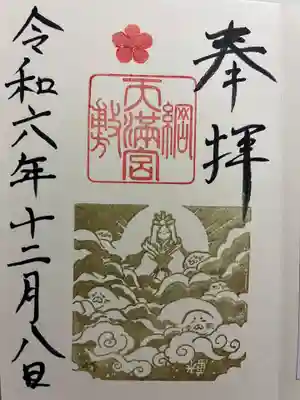 奉拝
綱敷天満宮
令和六年十二月八日